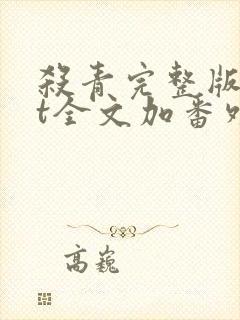 殺青完整版
t全文加番外
高巍